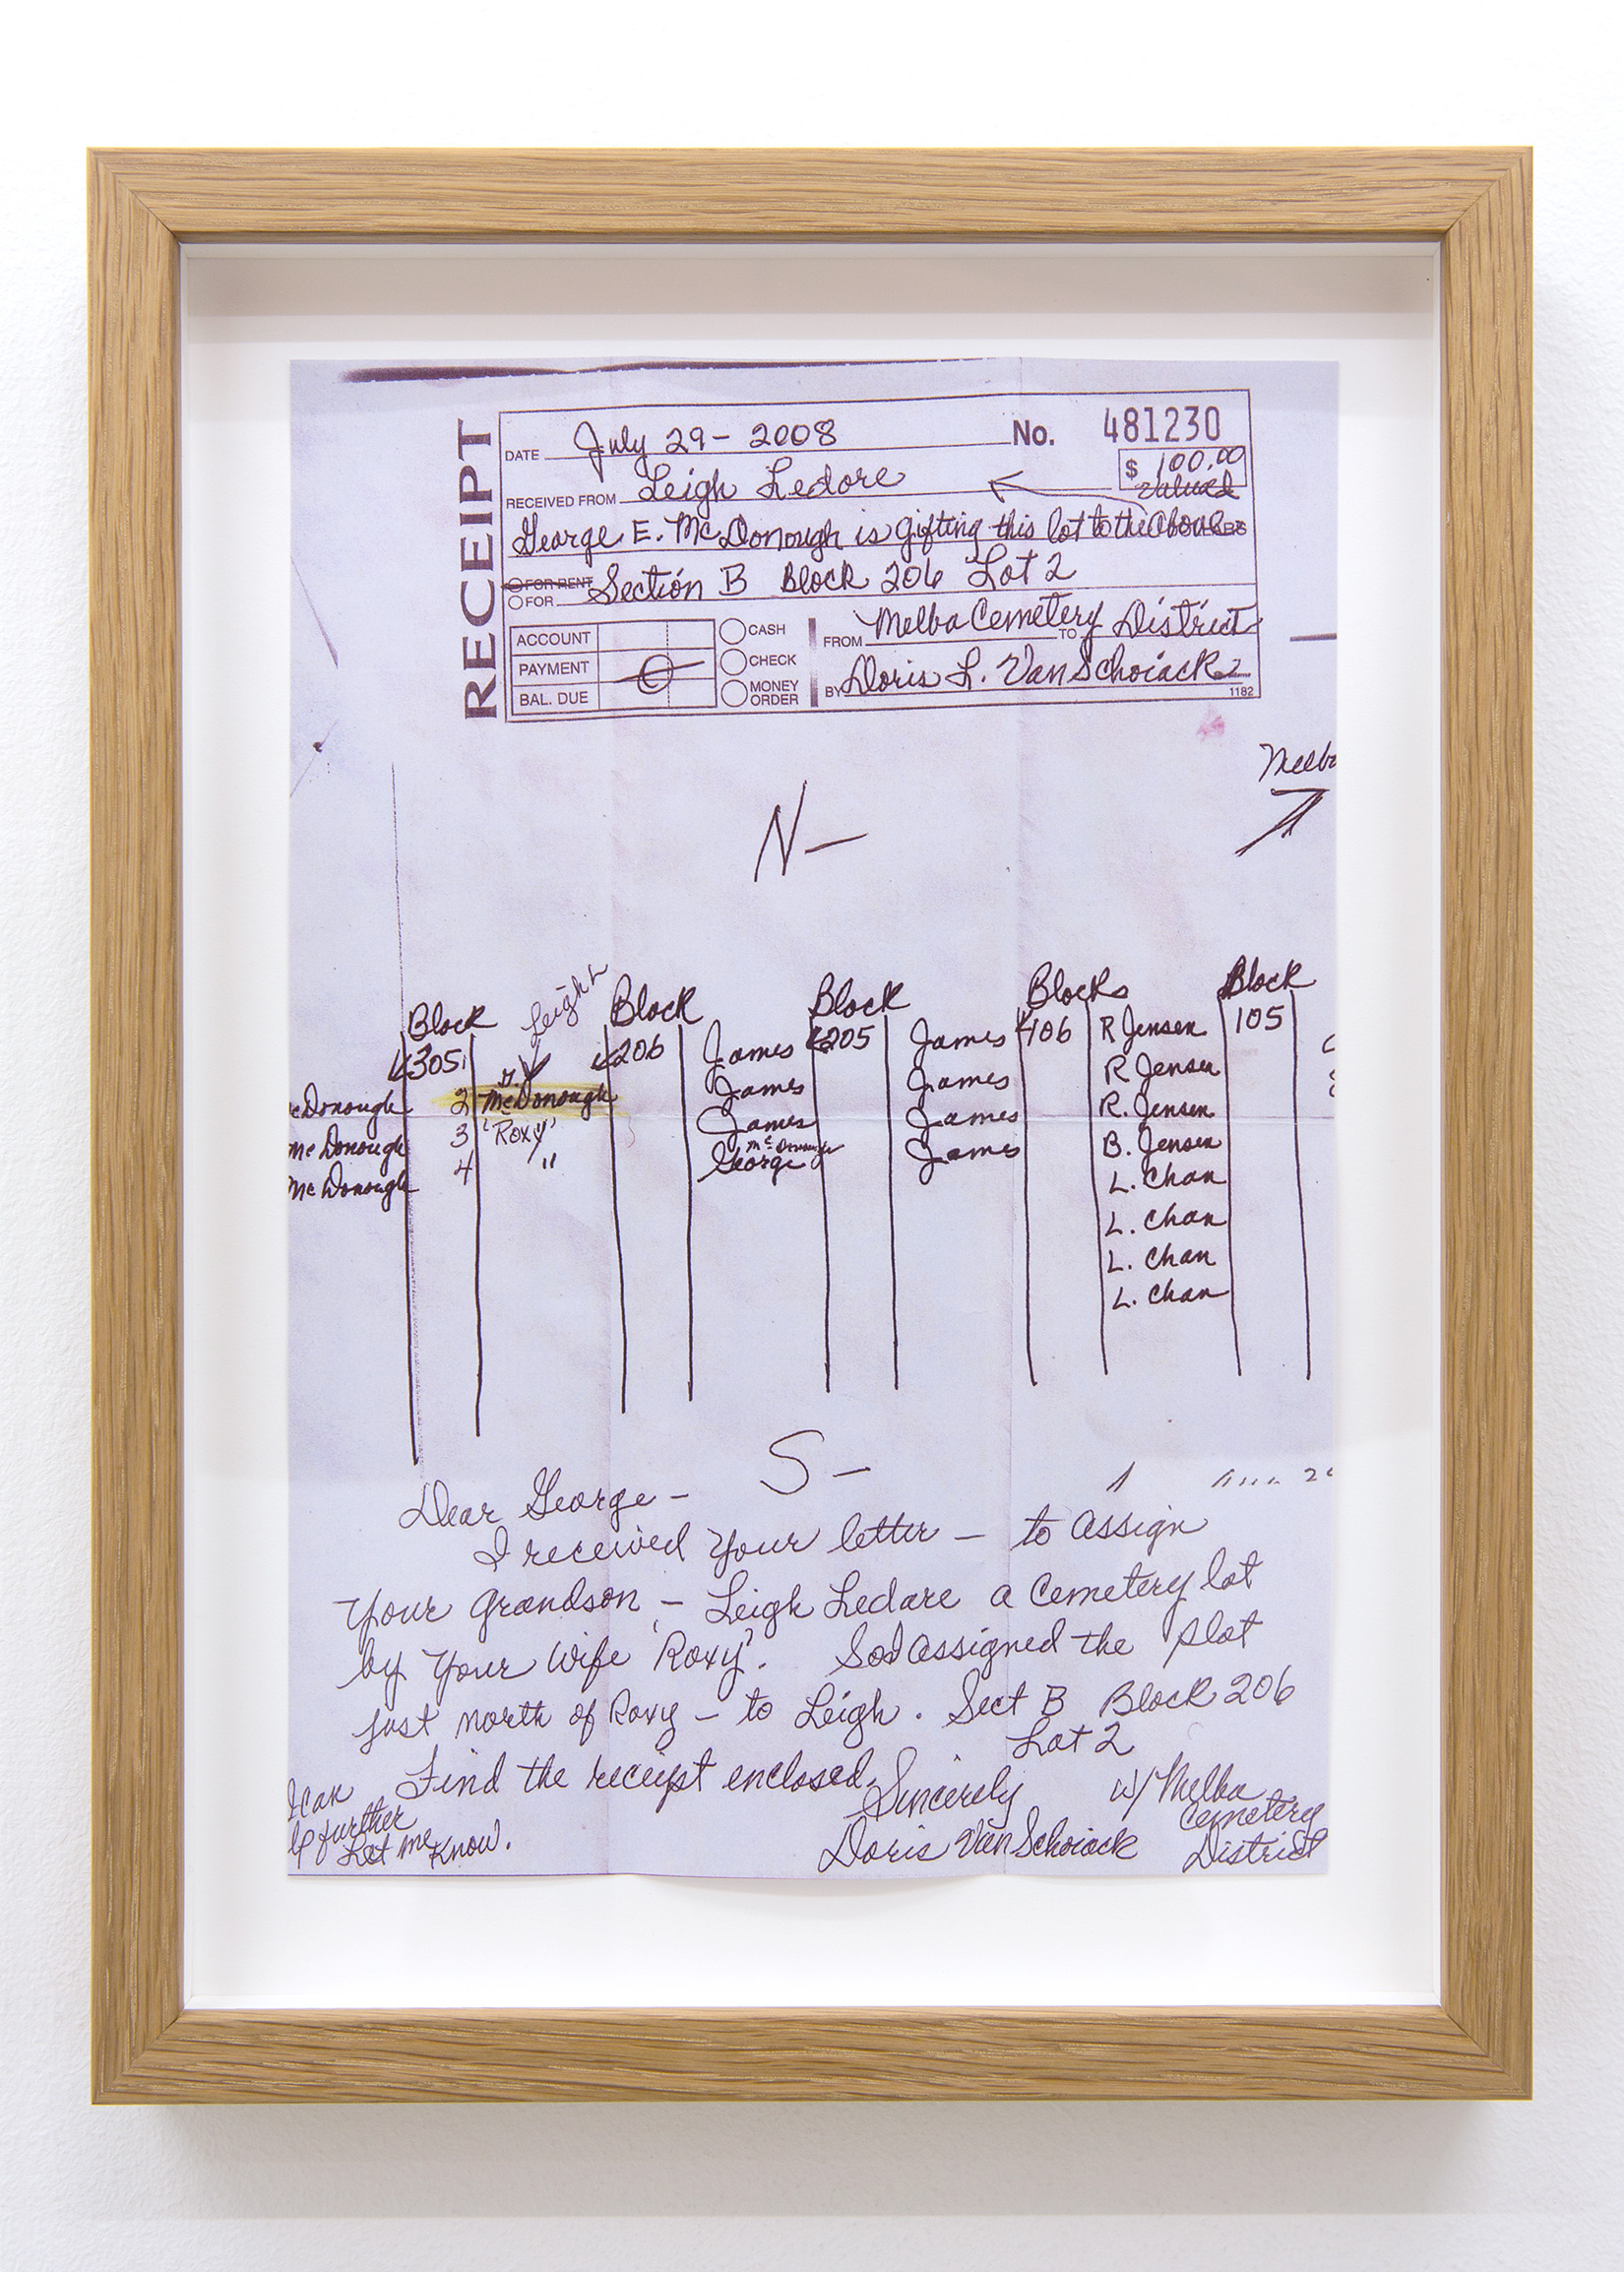 RECEIPT
DATE July 29 - 2008 No. 481230
RECEIVED FROM Leigh Ledore $ 100.00
valued
George E. McDonough is gifting this lot to the above
FOR RENT
FOR Section B Block 206 Lot 2
ACCOUNT CASH FROM Melba Cemetery TO District
PAYMENT CHECK
BAL. DUE MONEY ORDER BY Doris L. VanSchoiack
1182
Melba
N -
Block Leigh Block Block Blocks Block
305 206 James 205 James 106 R Jensen 105
McDonough James James R Jensen
McDonough 2 James James R. Jensen
McDonough 3 "Roxy" George McDonough James B. Jensen
McDonough 4 " L. Chan
L. Chan
L. Chan
L. Chan
S -
Dear George -
I received Your letter - to assign
Your Grandson - Leigh Ledare a Cemetery lot
by Your Wife 'Roxy'. So I assigned the plot
just north of Roxy - to Leigh. Sect B Block 206
Lot 2
Find the receipt enclosed.
I can
further
Let me Know.
Sincerely
Doris VanSchoiack
w/ Melba
Cemetery
District